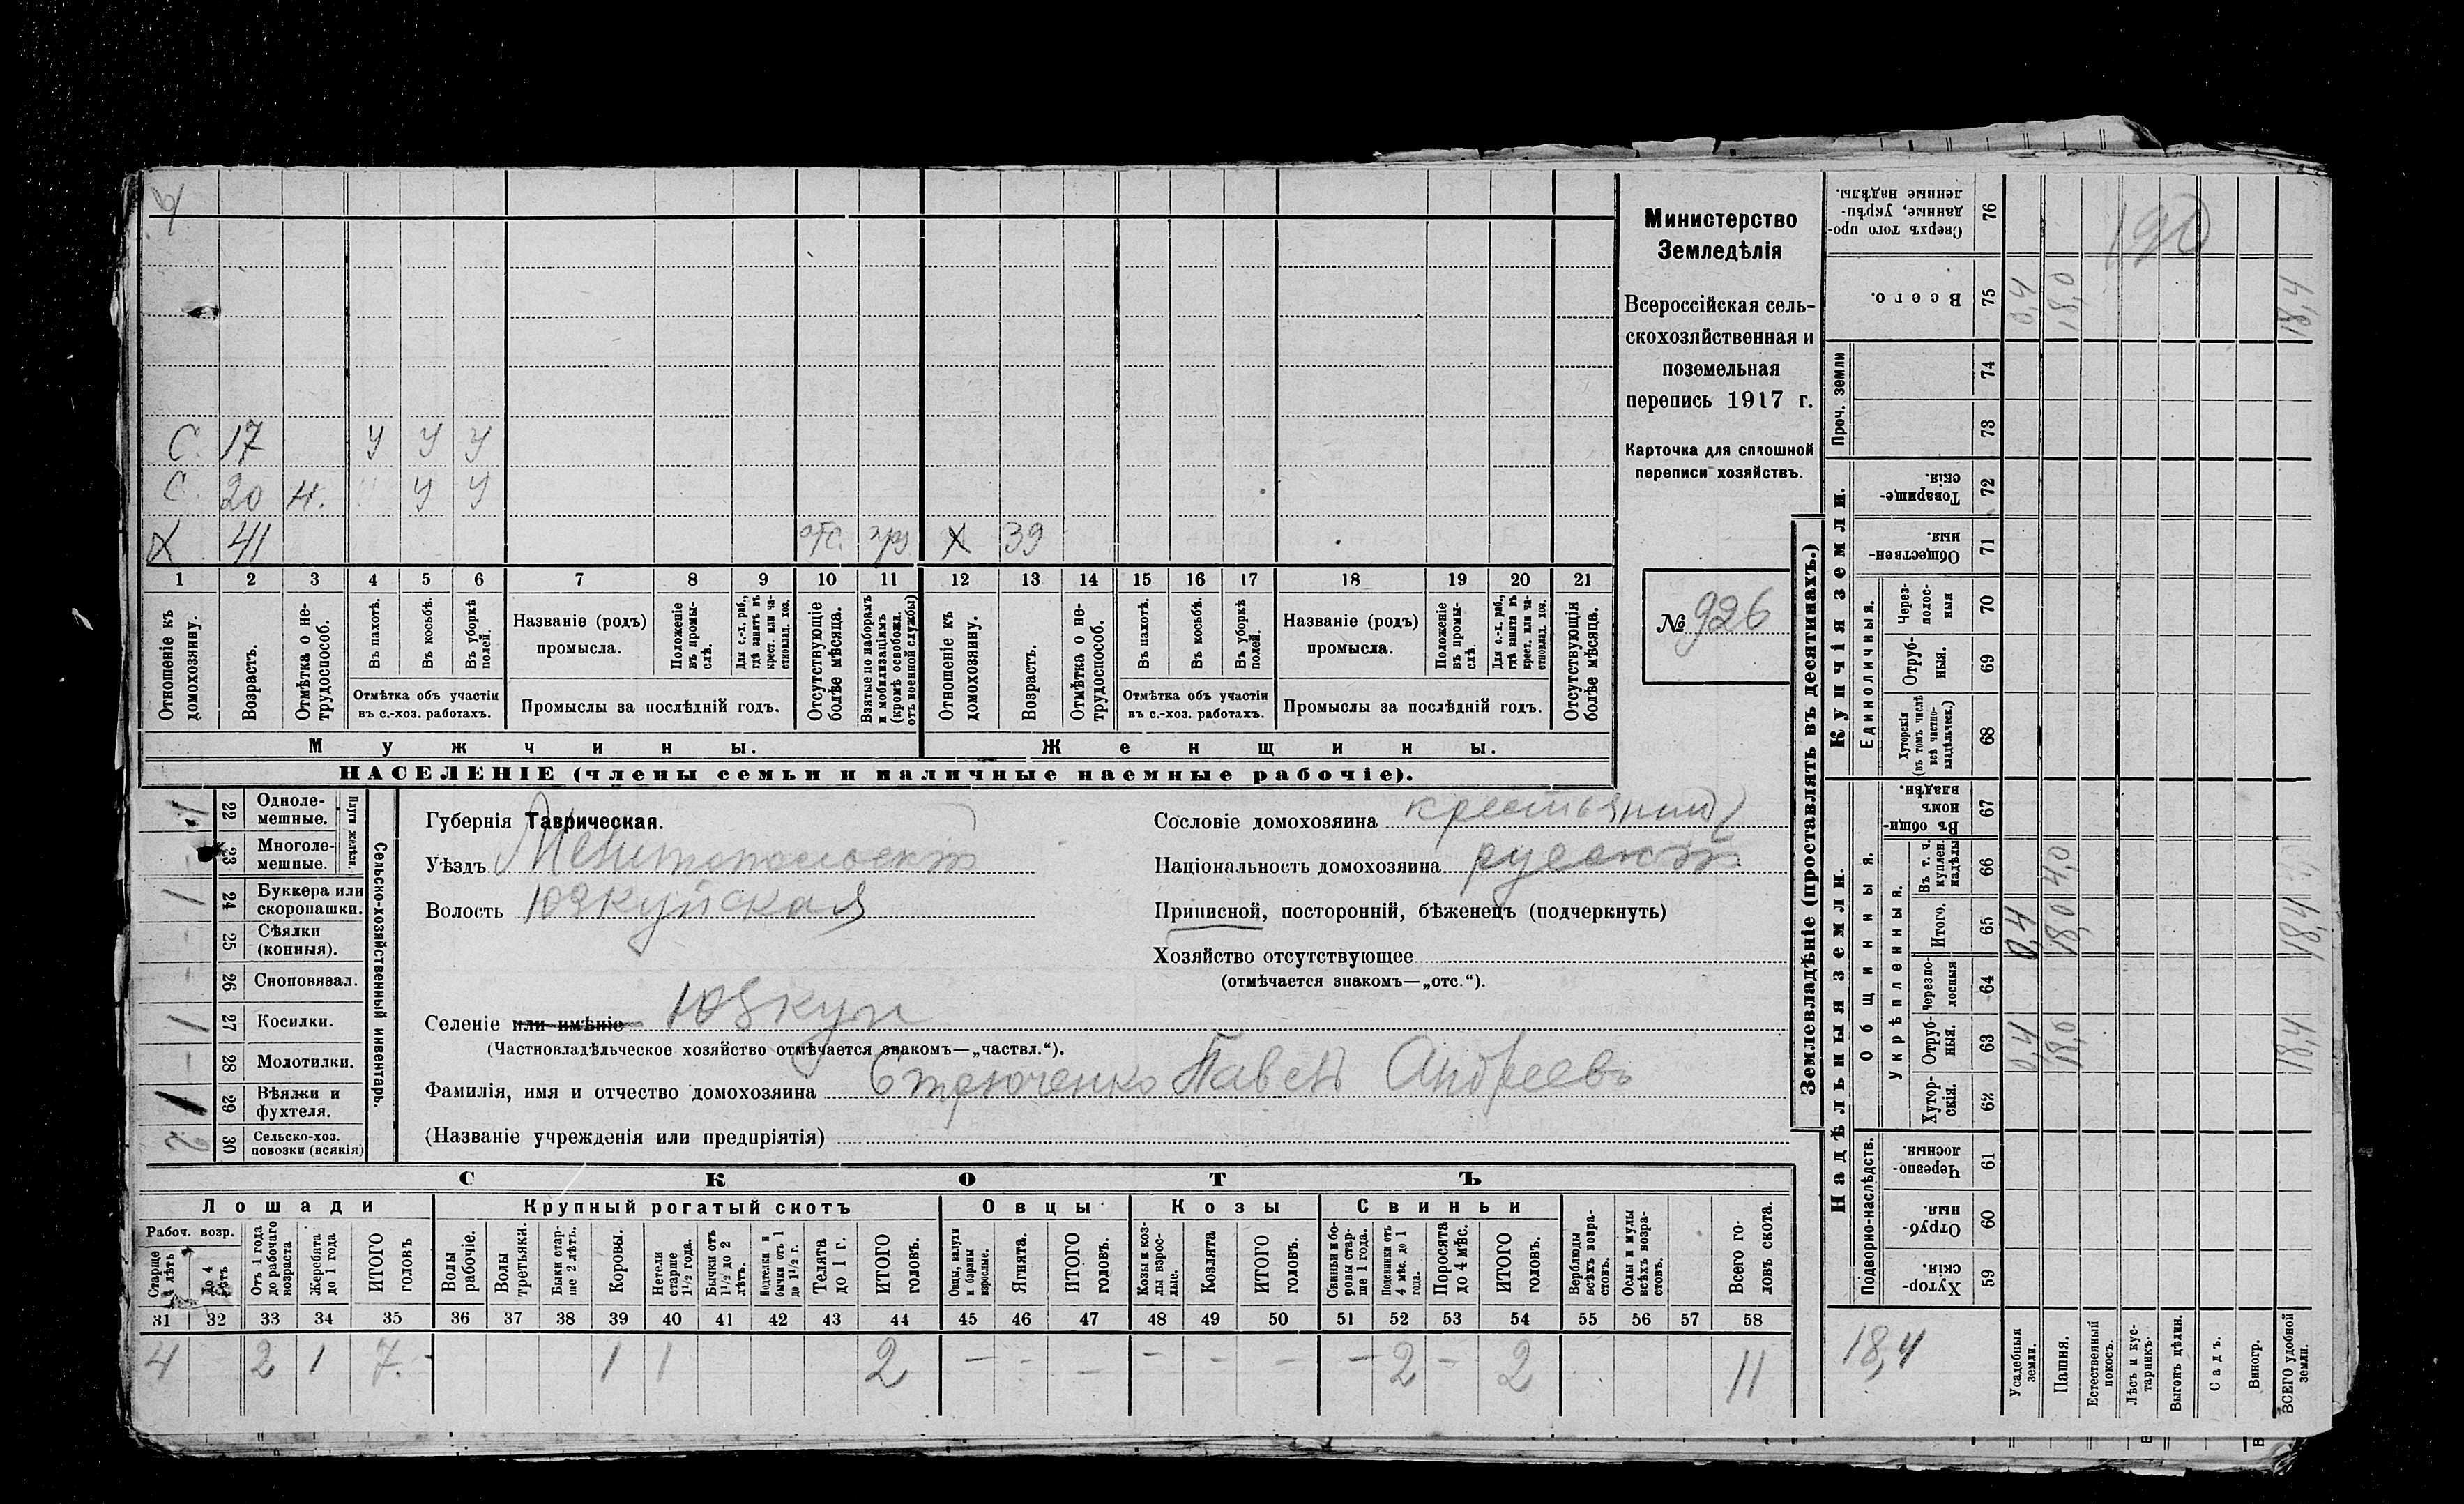 Министерство
Земледѣлія
Всероссійская сель-
скохозяйственная и
поземельная
перепись 1917 г.
Карточка для сплошной
переписи хозяйствъ.
№ 926
190
С. 17 у у у
С. 20 н. у у
Х 41 отс. Х 39
1 2 3 4 5 6 7 8 9 10 11 12 13 14 15 16 17 18 19 20 21
Отношеніе къ домохозяину.
Возрастъ.
Отмѣтка о не-трудоспособ.
Въ пахотѣ.
Въ косьбѣ.
Въ уборкѣ полей.
Отмѣтка объ участіи въ с.-хоз. работахъ.
Названіе (родъ) промысла.
Положеніе въ промы-слѣ.
Для с.-х. раб., гдѣ занятъ въ крест. или ча-стновлад. хоз.
Промыслы за послѣдній годъ.
Отсутствующіе болѣе мѣсяца.
Взятые по наборамъ и мобилизаціямъ (кромѣ освобожд. отъ военной службы)
Отношеніе къ домохозяину.
Возрастъ.
Отмѣтка о не-трудоспособ.
Въ пахотѣ.
Въ косьбѣ.
Въ уборкѣ полей.
Отмѣтка объ участіи въ с.-хоз. работахъ.
Названіе (родъ) промысла.
Положеніе въ промы-слѣ.
Для с.-х. раб., гдѣ занята въ крест. или ча-стновлад. хоз.
Промыслы за послѣдній годъ.
Отсутствующія болѣе мѣсяца.
Мужчины.
Женщины.
НАСЕЛЕНІЕ (члены семьи и наличные наемные рабочіе).
Сельско-хозяйственный инвентарь.
Плуги желѣзн.
1 22 Одноле-мешные.
- 23 Многоле-мешные.
1 24 Буккера или скоропашки.
- 25 Сѣялки (конныя).
- 26 Сноповязал.
1 27 Косилки.
- 28 Молотилки.
1 29 Вѣялки и фухтеля.
2 30 Сельско-хоз. повозки (всякія)
Губернія Таврическая.
Уѣздъ Мелитопольскій
Волость Юзкуйская
Селеніе или имѣніе Юзкуи
(Частновладѣльческое хозяйство отмѣчается знакомъ—„частвл.“).
Фамилія, имя и отчество домохозяина Стрюченко Павелъ Андреевъ
(Названіе учрежденія или предпріятія)
Сословіе домохозяина крестьянинъ
Національность домохозяина русскій
Приписной, посторонній, бѣженецъ (подчеркнуть)
Хозяйство отсутствующее
(отмѣчается знакомъ—„отс.“).
СКОТЪ
Лошади
Крупный рогатый скотъ
Овцы
Козы
Свиньи
Рабоч. возр.
Старше 4 лѣтъ
До 4 лѣтъ
Отъ 1 года до рабочаго возраста
Жеребята до 1 года
ИТОГО головъ
Волы рабочіе.
Волы третьяки.
Быки стар-ше 2 лѣтъ.
Коровы.
Нетели старше 1½ года.
Бычки отъ 1½ до 2 лѣтъ.
Подтелки и бычки отъ 1 до 1½ г.
Телята до 1 г.
ИТОГО головъ.
Овцы, валухи и бараны взрослые.
Ягнята.
ИТОГО головъ.
Козы и коз-лы взрос-лые.
Козлята
ИТОГО головъ.
Свиньи и бо-ровы стар-ше 1 года.
Подсвинки отъ 4 мѣс. до 1 года.
Поросята до 4 мѣс.
ИТОГО головъ.
Верблюды всѣхъ возра-стовъ.
Ослы и мулы всѣхъ возра-стовъ.
Всего го-ловъ скота.
31 32 33 34 35 36 37 38 39 40 41 42 43 44 45 46 47 48 49 50 51 52 53 54 55 56 57 58
4 2 1 7. - 1 1 2 - - - - - - - 2 - 2 11
Землевладѣніе (проставлять въ десятинахъ.)
Надѣльныя земли.
Купчія земли.
Проч. земли
Подворно-наслѣдств.
Общинныя.
Укрѣпленныя.
Единоличныя.
Сверхъ того про-данные, укрѣп-ленные надѣлы. 76
Всего. 75 0,4 18,0 18,4
74
73
Товарище-скія. 72
Обществен-ныя. 71
Через-полос-ныя 70
Отруб-ныя. 69
Хуторскія (въ томъ числѣ всѣ частно-владѣльческ.) 68
Въ общин-номъ владѣн. 67
Въ т. ч. куплен. надѣлы 66 4,0
Итого. 65 0,4 18,0 18,4
Черезпо-лосныя 64
Отруб-ныя. 63 0,4 18,0 18,4
Хутор-скія. 62
Черезпо-лосныя. 61
Отруб-ныя. 60
Хутор-скія. 59
18,4
Усадебныя земли.
Пашня.
Естественный покосъ.
Лѣсъ и кус-тарникъ.
Выгонъ цѣлин.
Садъ.
Виногр.
ВСЕГО удобной земли.